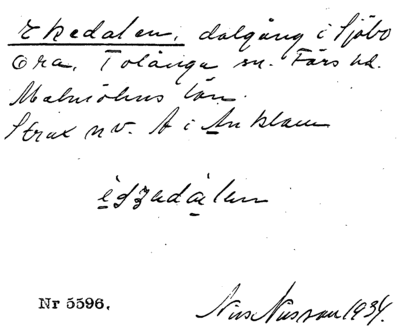 Ekedalen, dalgång i Sjöbo
Ora, Tolånga sn. Färs hd.
Malmöhus län.
Strax nv. A i Anklam
Nr 5596.
Nils Nilsson 1934.